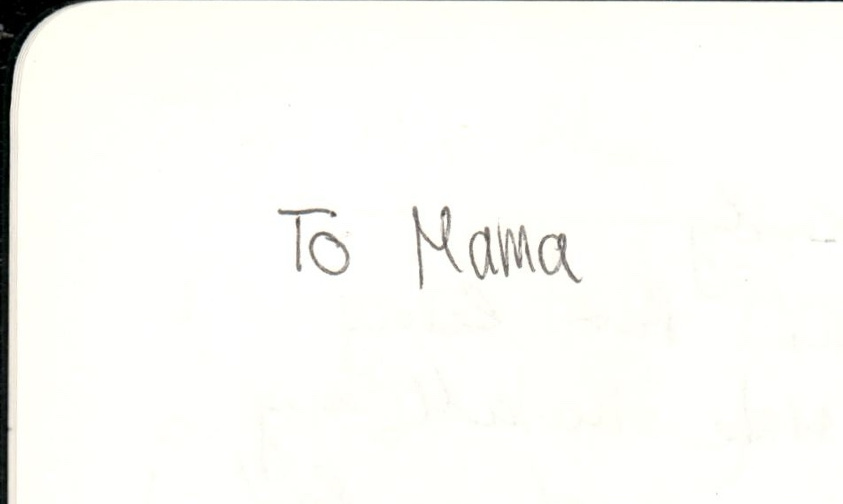 To Mama